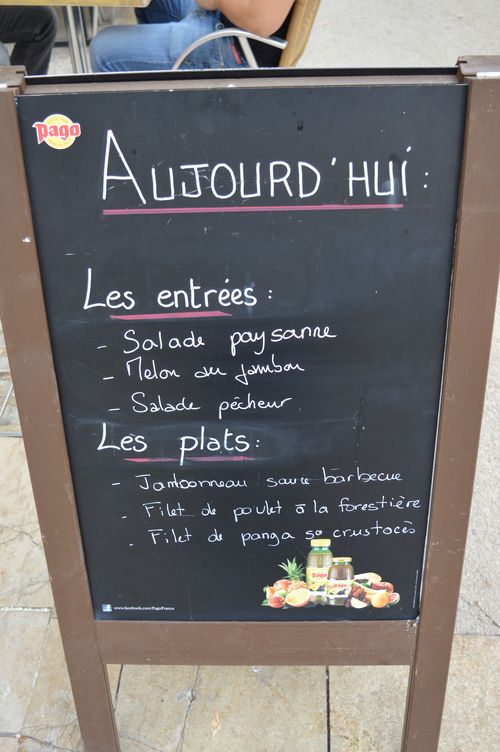 pago
AUJOURD'HUI :
Les entrées :
- Salade paysanne
- Melon au jambon
- Salade pêcheur
Les plats :
- Jambonneau sauce barbecue
- Filet de poulet à la forestière
- Filet de panga sc crustacés
pago
www.facebook.com/PagoFrance